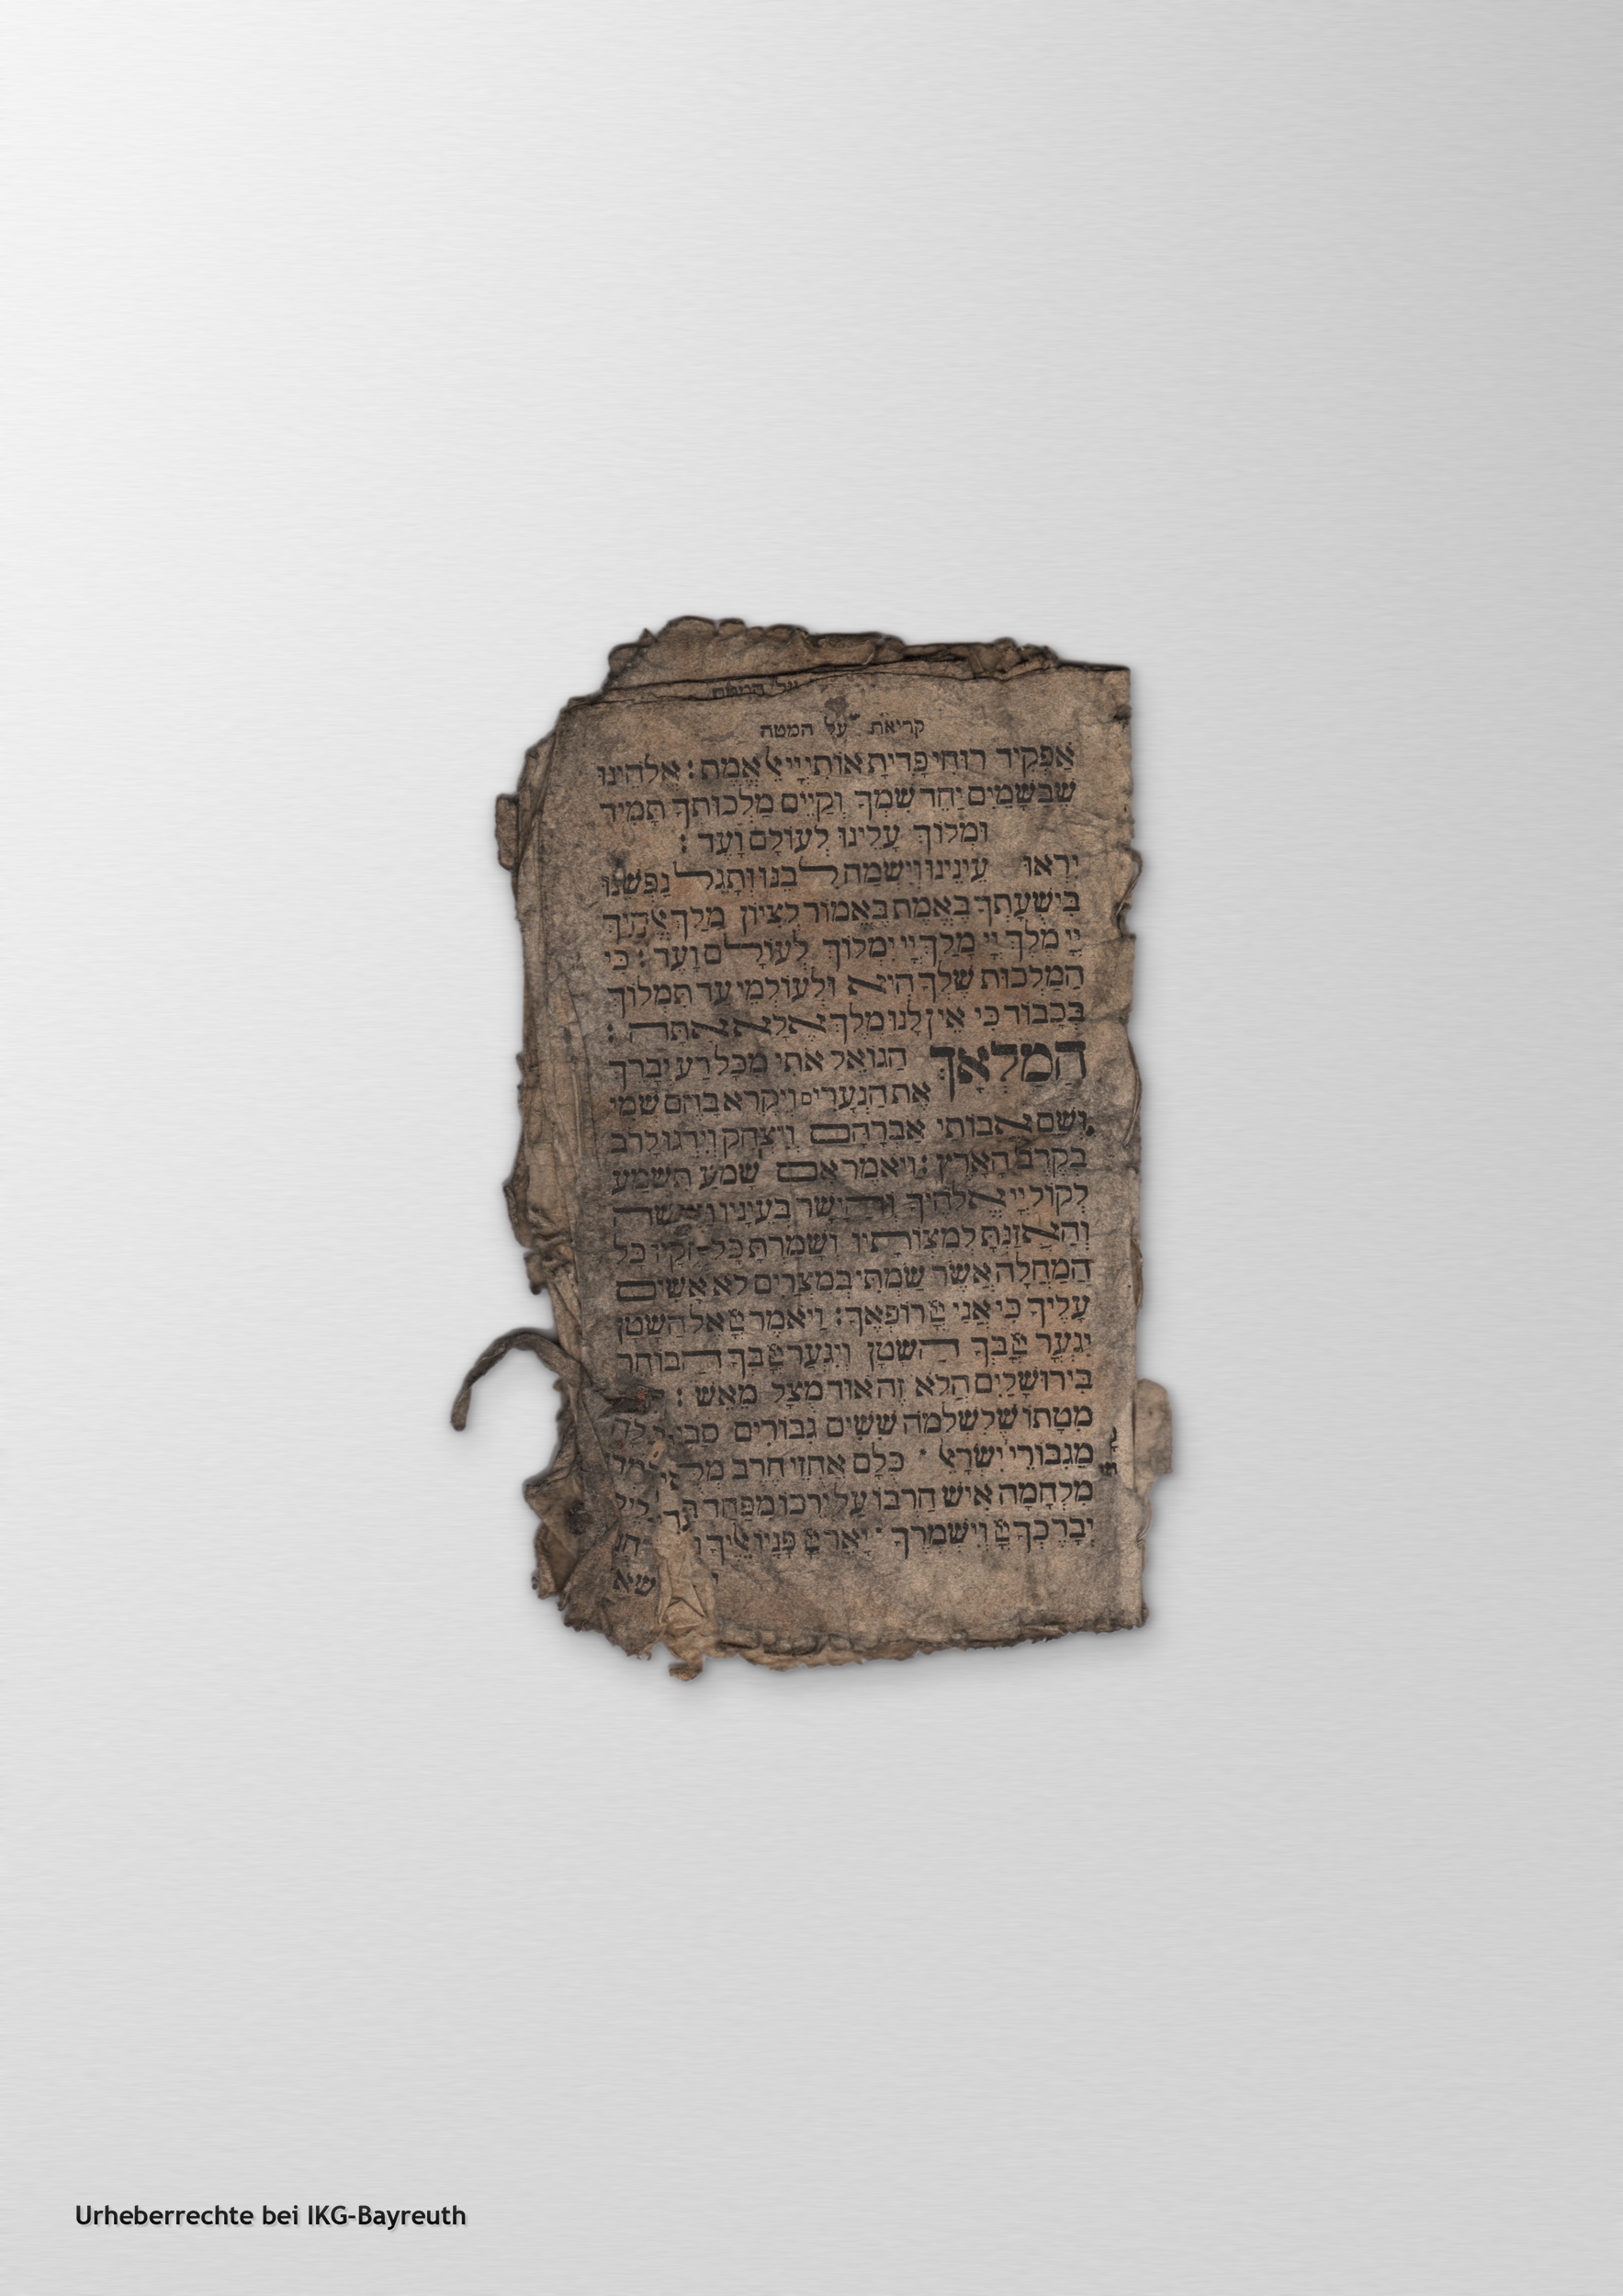 על המטה
קריאת על המטה
אַפְקִיד רוּחִי פָּדִיתָ אוֹתִי יְיָ אֵל אֱמֶת: אֱלֹהֵינוּ
שֶׁבַּשָּׁמַיִם יַחֵד שִׁמְךָ וְקַיֵּם מַלְכוּתְךָ תָּמִיד
וּמְלוֹךְ עָלֵינוּ לְעוֹלָם וָעֶד:
יִרְאוּ עֵינֵינוּ וְיִשְׂמַח לִבֵּנוּ וְתָגֵל נַפְשֵׁנוּ
בִּישֻׁעָתְךָ בֶּאֱמֶת בֶּאֱמוֹר לְצִיּוֹן מָלַךְ אֱלֹהָיִךְ
יְיָ מֶלֶךְ יְיָ מָלָךְ יְיָ יִמְלוֹךְ לְעוֹלָם וָעֶד: כִּי
הַמַּלְכוּת שֶׁלְּךָ הִיא וּלְעוֹלְמֵי עַד תִּמְלוֹךְ
בְּכָבוֹד כִּי אֵין לָנוּ מֶלֶךְ אֶלָּא אָתָּה:
הַמַּלְאָךְ הַגּוֹאֵל אֹתִי מִכָּל רַע יְבָרֵךְ
אֶת הַנְּעָרִים וְיִקָּרֵא בָהֶם שְׁמִי
וְשֵׁם אֲבוֹתַי אַבְרָהָם וְיִצְחָק וְיִדְגּוּ לָרֹב
בְּקֶרֶב הָאָרֶץ: וַיֹּאמֶר אִם שָׁמֹעַ תִּשְׁמַע
לְקוֹל יְיָ אֱלֹהֶיךָ וְהַיָּשָׁר בְּעֵינָיו תַּעֲשֶׂה
וְהַאֲזַנְתָּ לְמִצְוֹתָיו וְשָׁמַרְתָּ כָּל חֻקָּיו כָּל
הַמַּחֲלָה אֲשֶׁר שַׂמְתִּי בְמִצְרַיִם לֹא אָשִׂים
עָלֶיךָ כִּי אֲנִי יְיָ רוֹפְאֶךָ: וַיֹּאמֶר יְיָ אֶל הַשָּׂטָן
יִגְעַר יְיָ בְּךָ הַשָּׂטָן וְיִגְעַר יְיָ בְּךָ הַבּוֹחֵר
בִּירוּשָׁלַיִם הֲלֹא זֶה אוּד מֻצָּל מֵאֵשׁ:
מִטָּתוֹ שֶׁלִּשְׁלֹמֹה שִׁשִּׁים גִּבּוֹרִים סביב לה
מִגִּבּוֹרֵי יִשְׂרָאֵל כֻּלָּם אֲחֻזֵי חֶרֶב
מִלְחָמָה אִישׁ חַרְבּוֹ עַל יְרֵכוֹ מִפַּחַד
יְבָרֶכְךָ יְיָ וְיִשְׁמְרֶךָ יָאֵר יְיָ פָּנָיו אֵלֶיךָ
שא
Urheberrechte bei IKG-Bayreuth